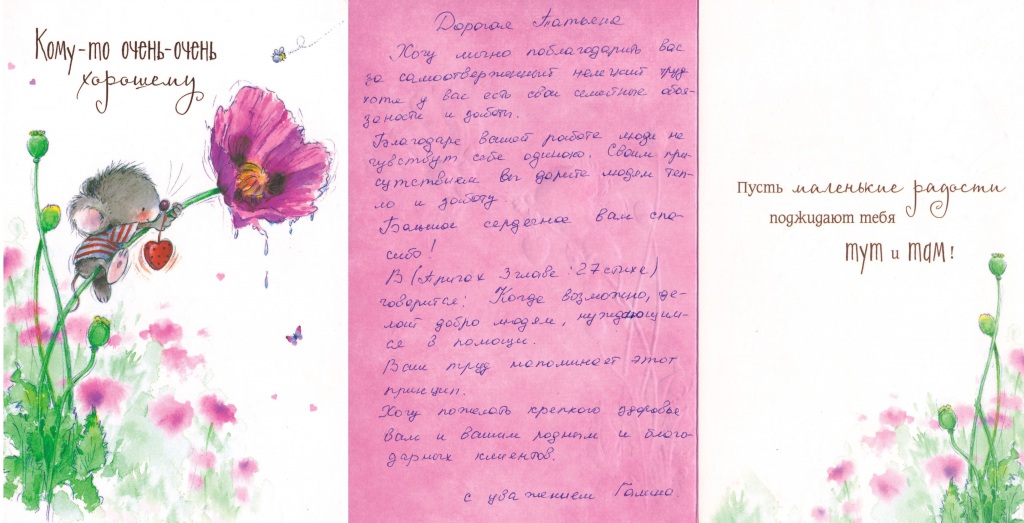 Кому-то очень-очень
хорошему
Дорогая Татьяна
Хочу лично поблагодарить вас
за самоотверженный нелегкий труд
хотя у вас есть свои семейные обя-
заности и заботы.
Благодаря вашей работе люди не
чувствуют себе одиноко. Своим при-
сутствием вы дарите людям теп-
ло и заботу
Большое сердечное вам спа-
сибо!
В (Притчах 3 главе : 27 стихе)
говорится: Когда возможно, де-
лай добро людям, нуждающим-
ся в помощи.
Ваш труд напоминает этот
принцип.
Хочу пожелать крепкого здоровье
вам и вашим родным и благо-
дарных клиентов.
с уважением Галина.
Пусть маленькие радости
поджидают тебя
тут и там!